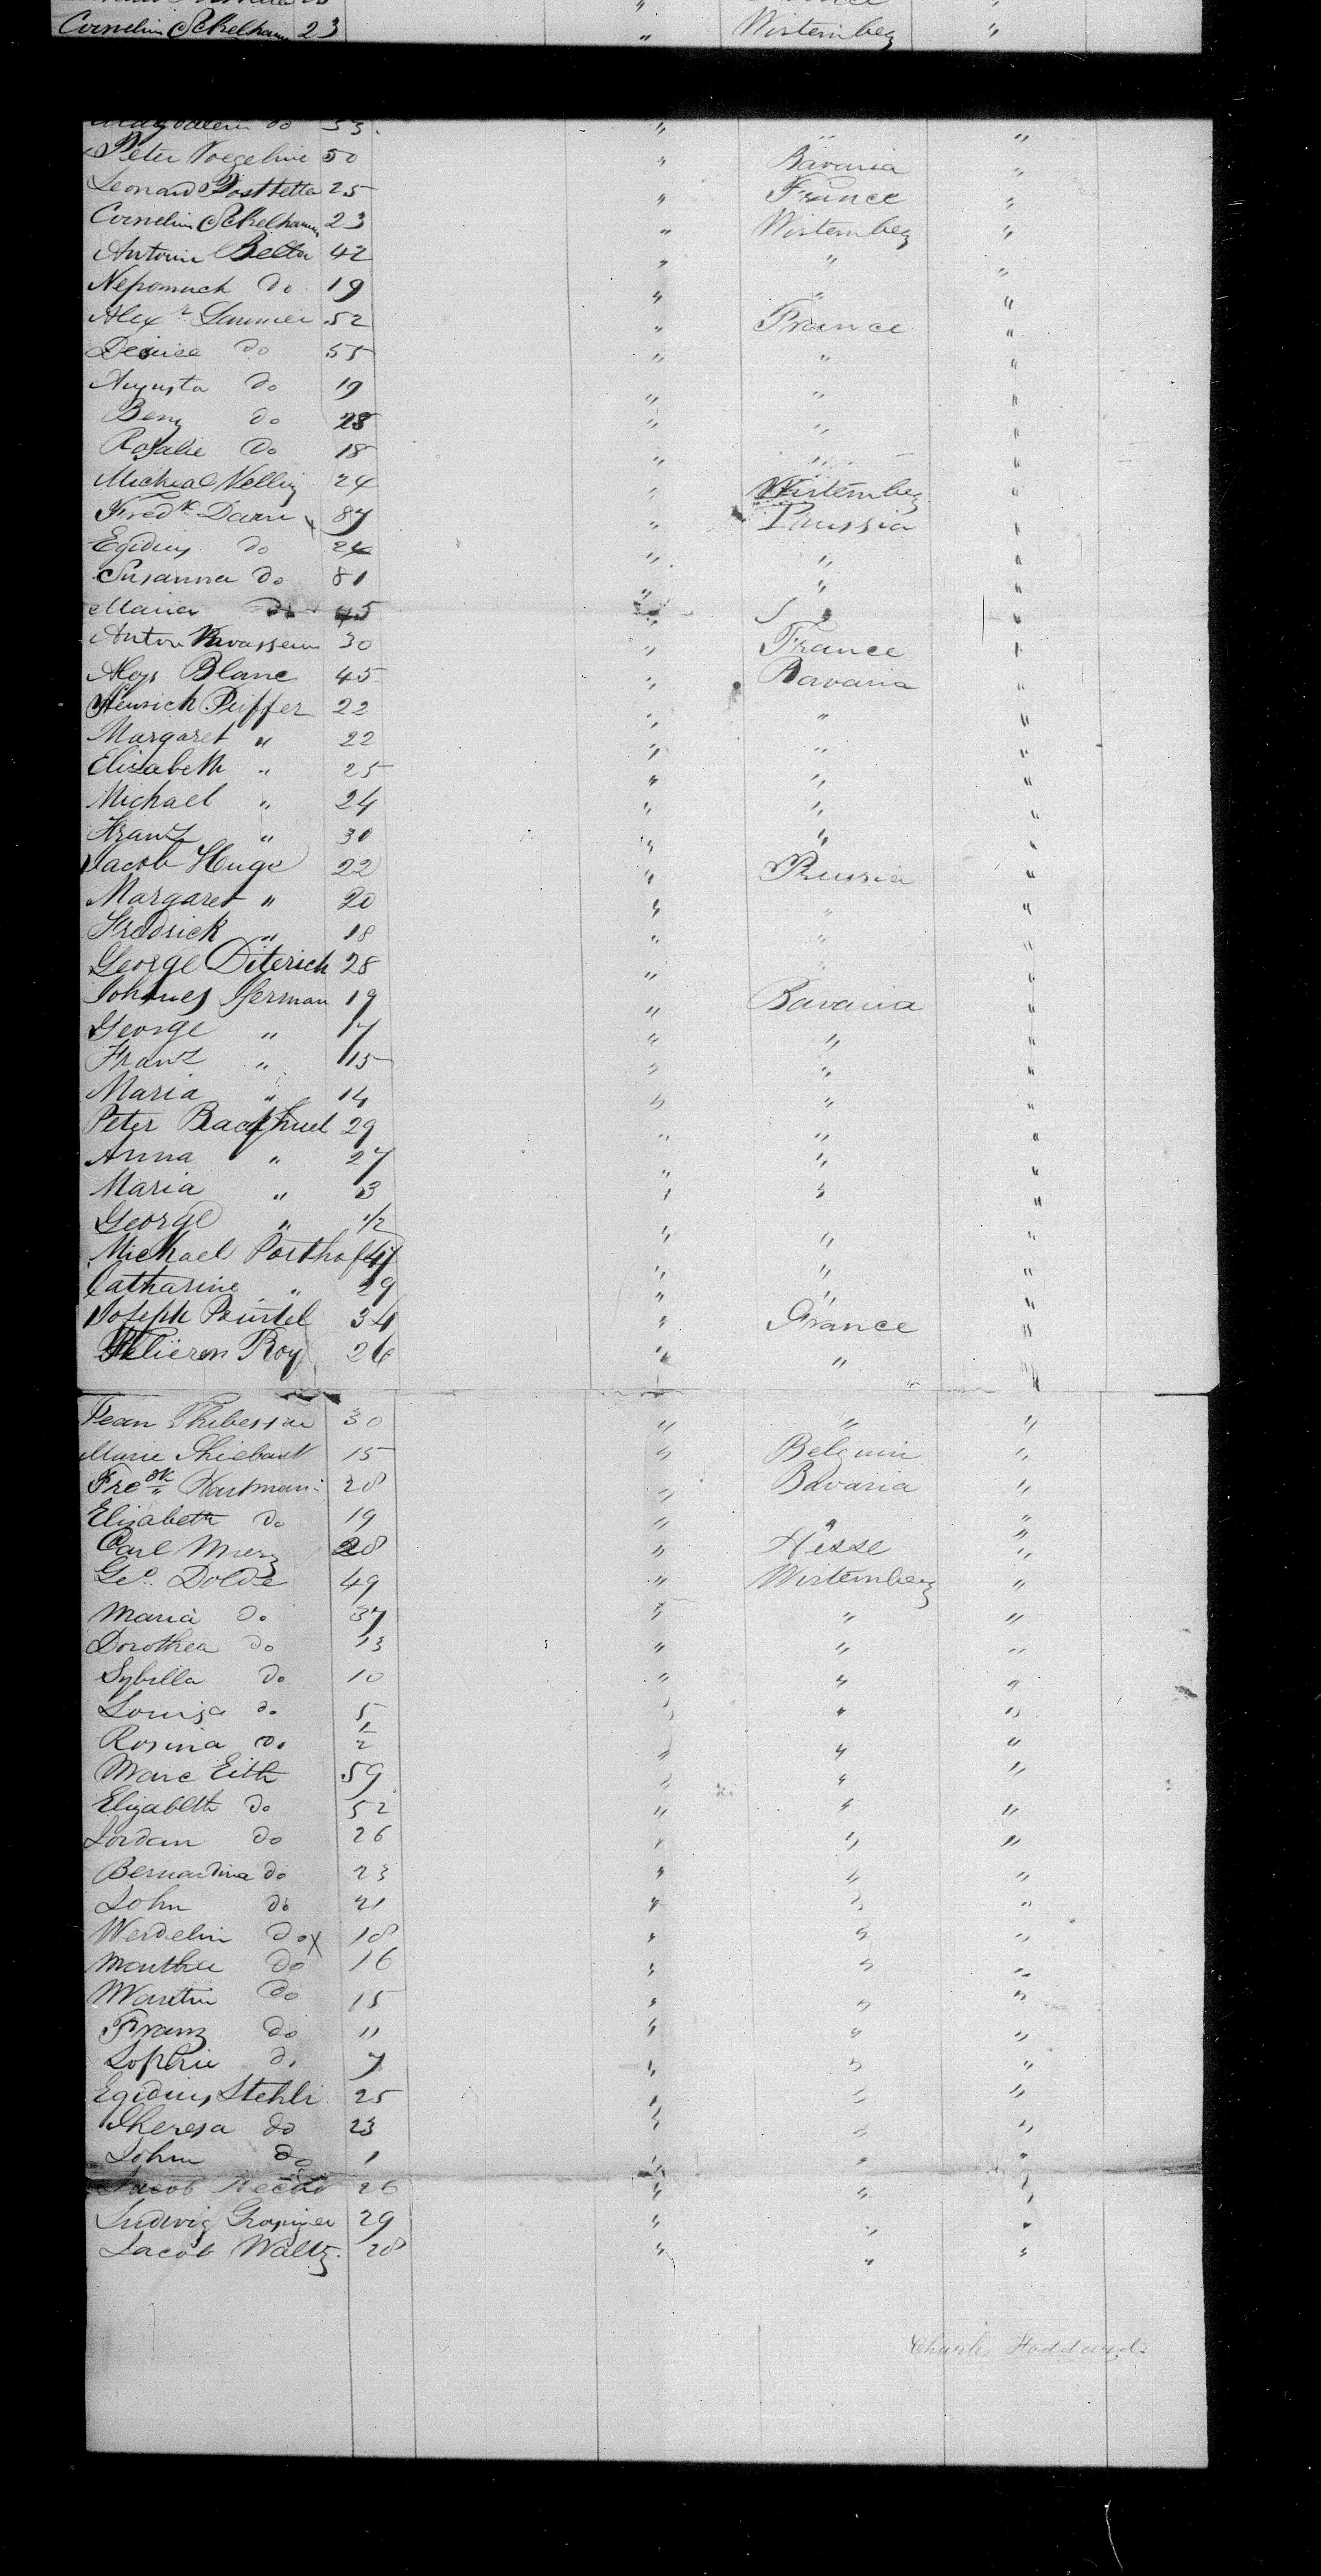 Cornelius Sekelhamr 23 " Wirtemberg "
Magdalein do 33 " " "
Peter Voegeline 50 " Bavaria "
Leonard Posttetta 25 " France "
Cornelius Sekelhamr 23 " Wirtemberg "
Antoine Betta 42 " " "
Nepomuck do 19 " " "
Alexr Launier 52 " France "
Denise do 55 " " "
Augusta do 19 " " "
Benj do 28 " " "
Rosalie do 18 " " "
Micheal Nellig 24 " Wirtemberg "
Fredk Dann 87 " Prussia "
Egidius do 24 " " "
Susanna do 81 " " "
Maria do 45 " " "
Anton 30 " France "
Aloys Blanc 45 " Bavaria "
Henrich Peiffer 22 " " "
Margaret " 22 " " "
Elizabeth " 25 " " "
Michael " 24 " " "
Franz " 30 " " "
Jacob Huge 22 " Prussia "
Margaret " 20 " " "
Fredrick " 18 " " "
George Diterich 28 " " "
Johnnes German 19 " Bavaria "
George " 17 " " "
Franz " 15 " " "
Maria " 14 " " "
Peter 29 " " "
Anna " 27 " " "
Maria " 3 " " "
George " 1/2 "
Michael Posthof 47 " " "
Catharine " 29 " " "
Joseph Peintel 34 " France "
Roy 26 " " "
Jean Thibessar 30 " " "
Marie Thiebaut 15 " Belguim "
Fredk Hartman 28 " Bavaria "
Elizabeth do 19 " " "
Carl Merz 28 " Hesse "
Geo. Dolde 49 " Wirtemberg "
Maria do 37 " " "
Dorothea do 13 " " "
Sybilla do 10 " " "
Louisa do 5 " " "
Rosina do 1/2 " " "
Marc Eith 59 " " "
Elizabeth do 52 " " "
Jordan do 26 " " "
Bernardina do 23 " " "
John do 21 " " "
Werdelin do x 18 " " "
Monthu do 16 " " "
Martin do 15 " " "
Franz do 11 " " "
Sophie do 7 " " "
Egidius Stehli 25 " " "
Theresa do 23 " " "
John do 1 " " "
Jacob 26 " " "
Ludwig 29 " " "
Jacob Waltz 28 " " "
Charles Stoddard